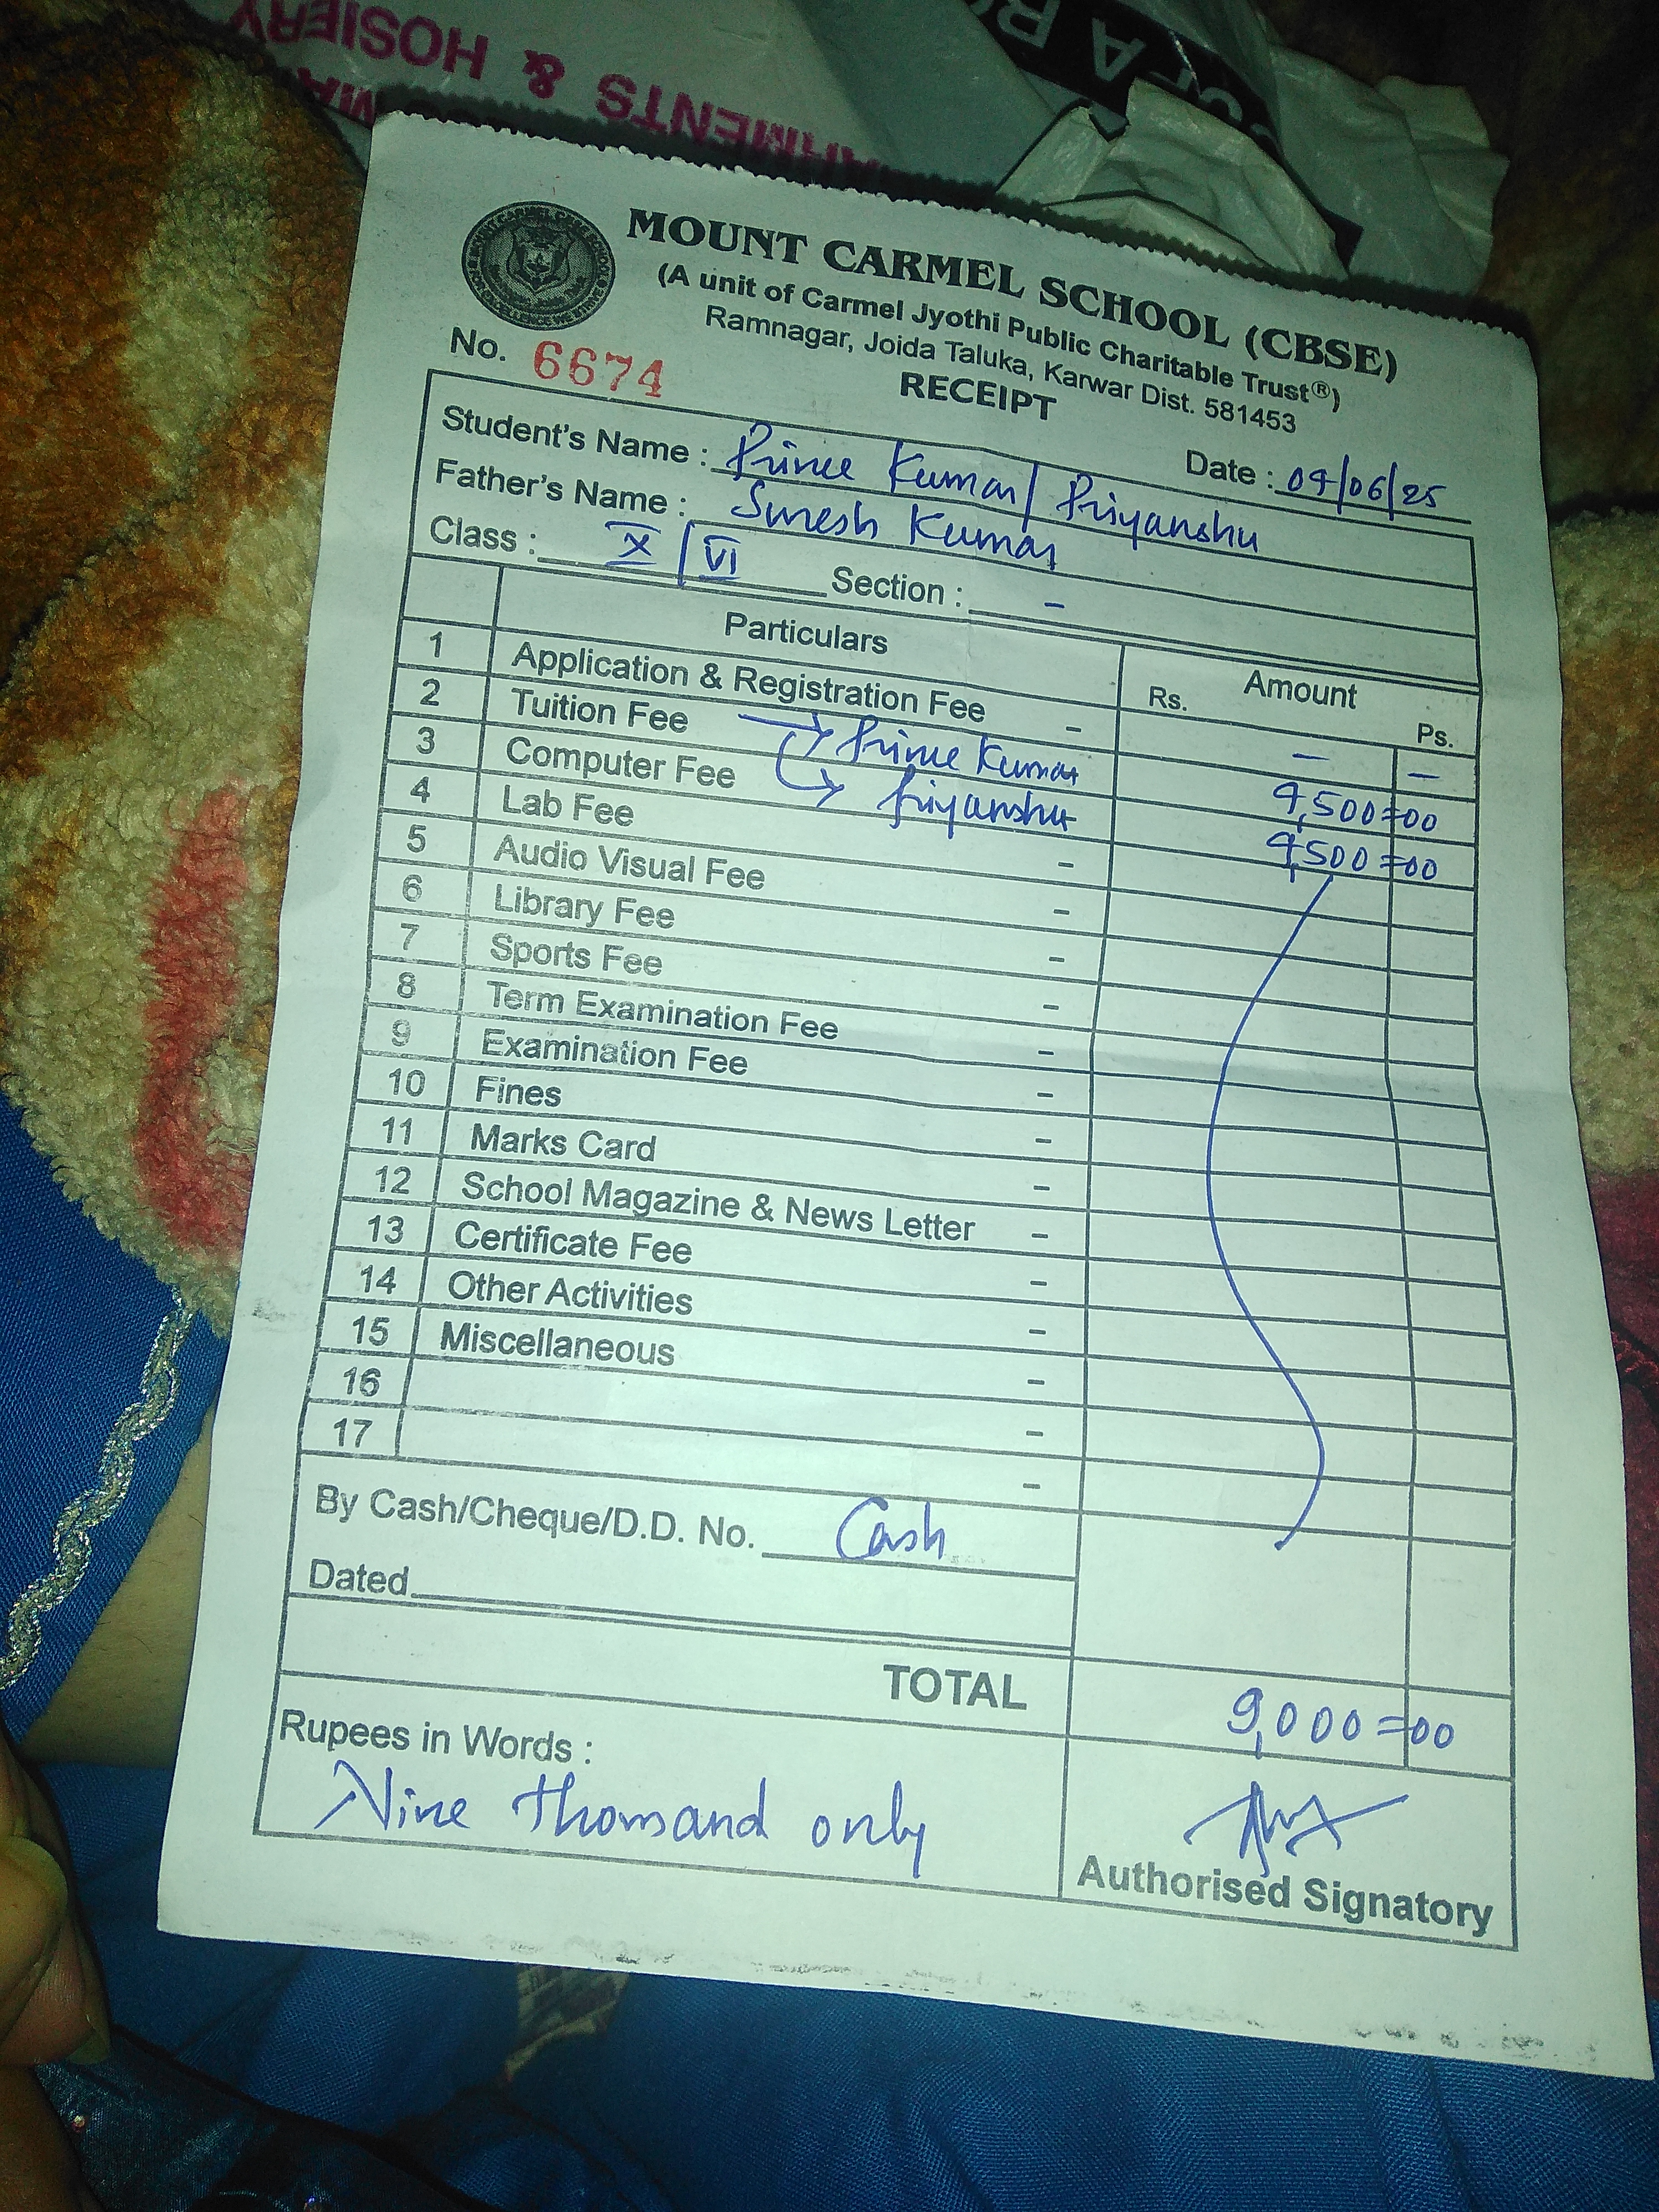 ARMENTS & HOSIERY
MOUNT CARMEL SCHOOL (CBSE)
(A unit of Carmel Jyothi Public Charitable Trust®)
Ramnagar, Joida Taluka, Karwar Dist. 581453
No. 6674
RECEIPT
Date : 04/06/25
Student's Name : Prince Kumar/ Priyanshu
Father's Name : Suresh Kumar
Class : X / VI Section : -
Particulars Amount
Rs. Ps.
1 Application & Registration Fee - - -
2 Tuition Fee → Prince Kumar 4,500=00
3 Computer Fee → Priyanshu 4,500=00
4 Lab Fee -
5 Audio Visual Fee -
6 Library Fee -
7 Sports Fee -
8 Term Examination Fee -
9 Examination Fee -
10 Fines -
11 Marks Card -
12 School Magazine & News Letter -
13 Certificate Fee -
14 Other Activities -
15 Miscellaneous -
16 -
17 -
By Cash/Cheque/D.D. No. Cash
Dated
TOTAL 9,000=00
Rupees in Words :
Nine thousand only
Authorised Signatory